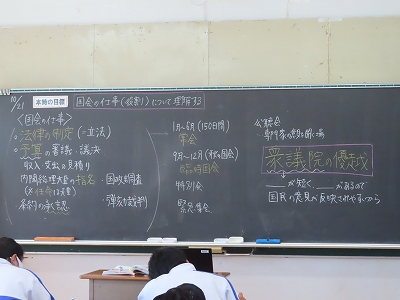 10/21 本時の目標 国会の仕事(役割)について理解する
<国会の仕事>
法律の制定(=立法)
予算の審議・議決
収入、支出の見積り
内閣総理大臣の指名
(※任命は天皇)
条約の承認
・国政調査
・弾劾裁判
1月~6月(150日間)
常会
9月~12月(秋の国会)
臨時国会
特別会
緊急集会
公聴会
・専門家の意見を聞く場
衆議院の優越
が短く、 があるので
国民の意見が反映されやすいから